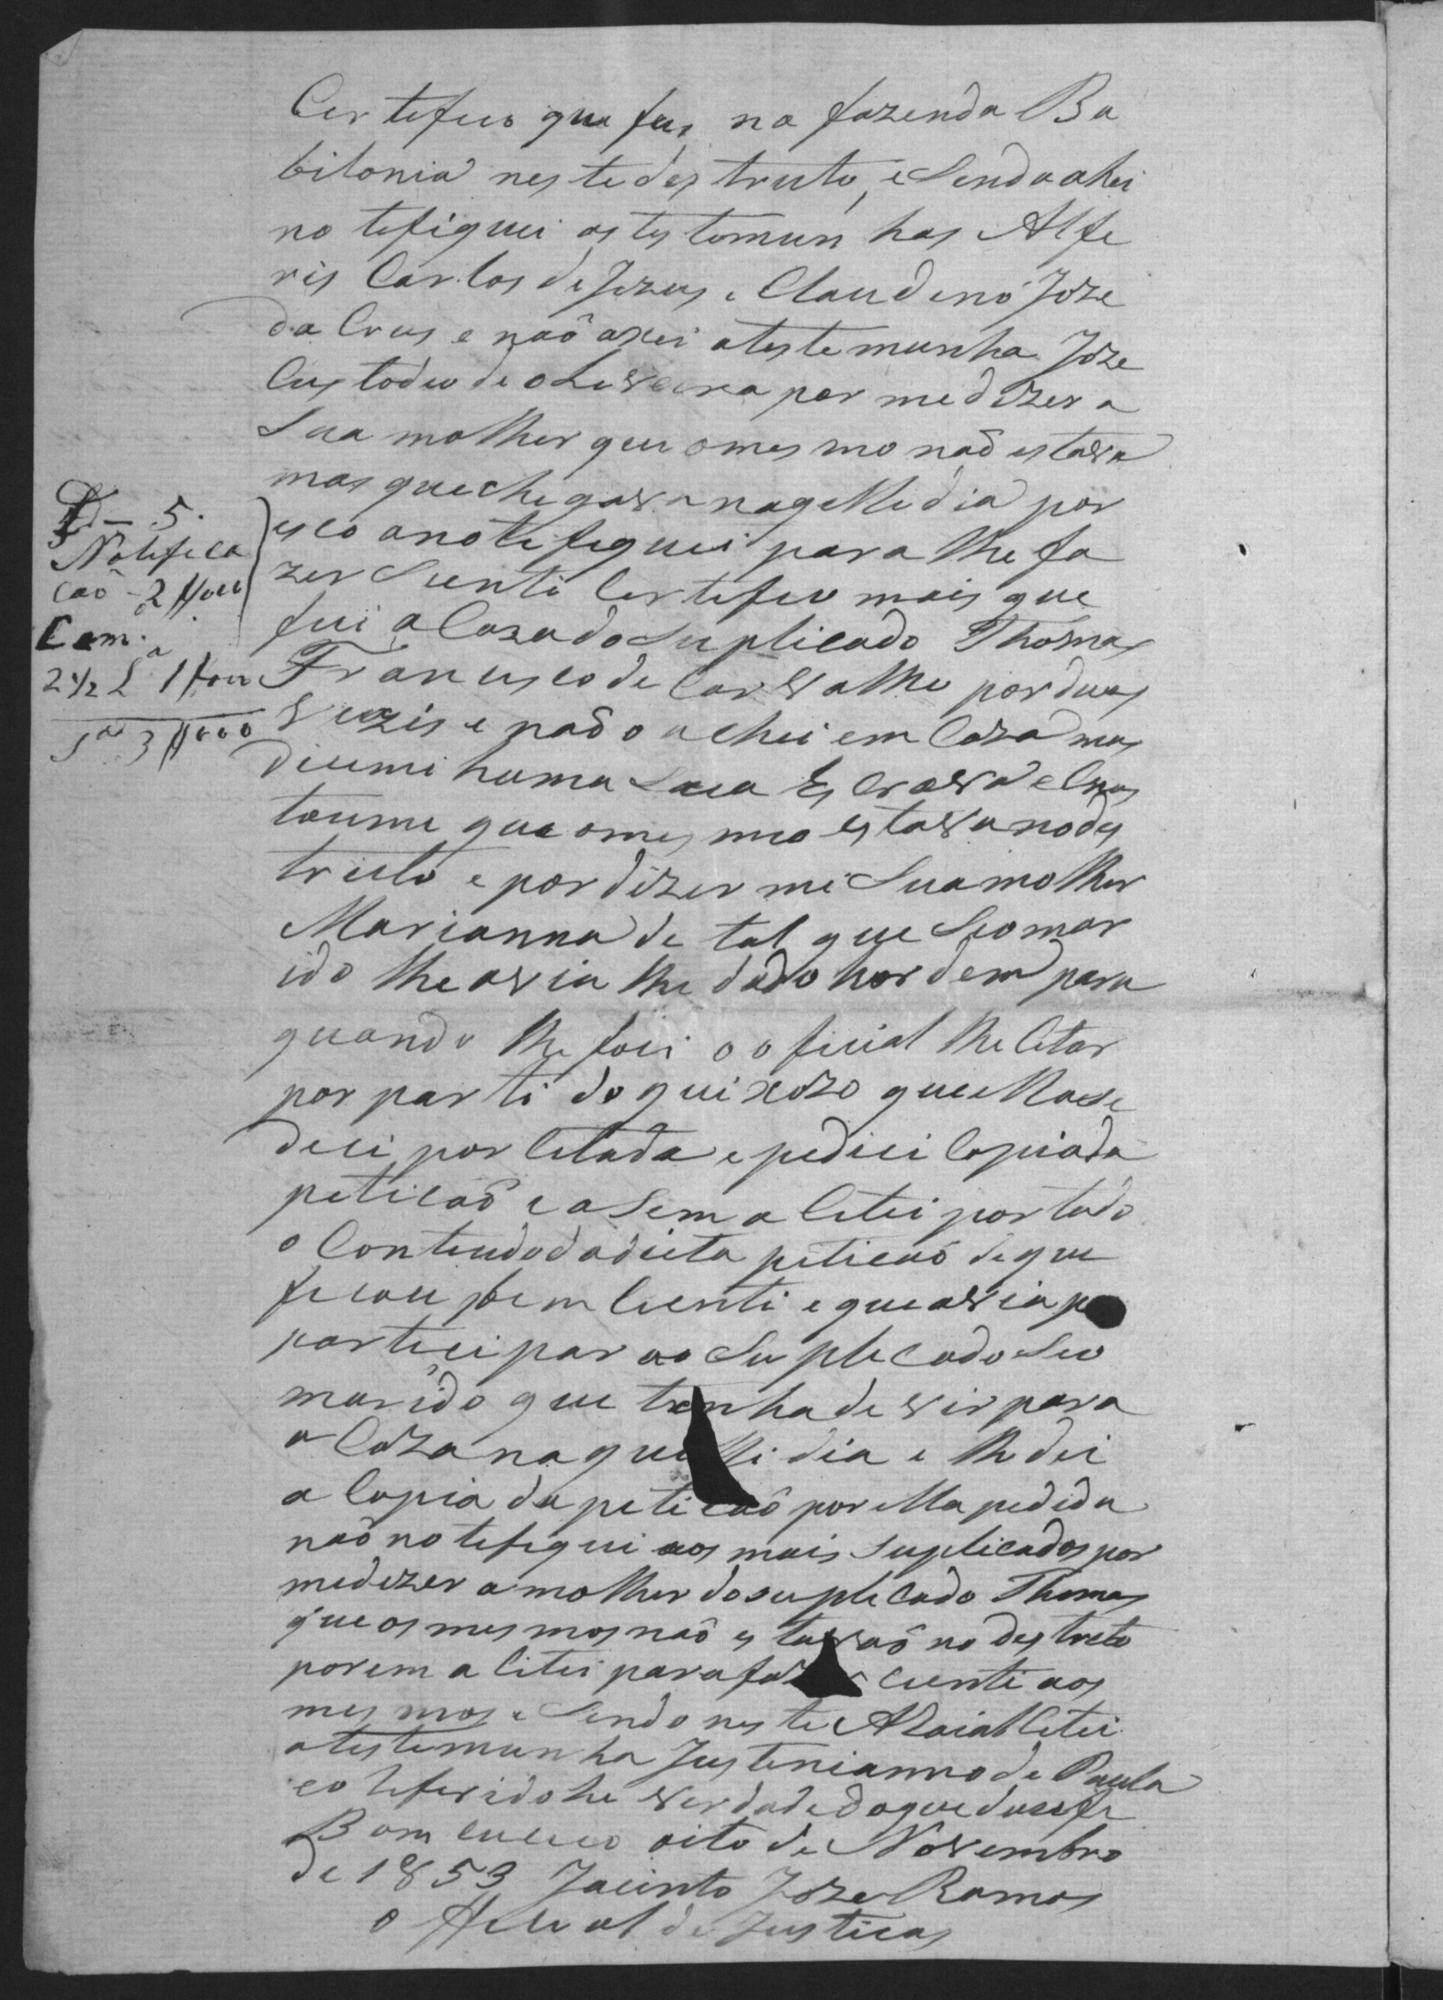 Certefico que fui na fazenda Ba
bilonia neste destructo, e sendo ahi
notefiquei as testomunhas Alfe
ris Carlos de Jezus e Claudeno Joze
da Crus e naõ axei a testemunha Joze
Custodeo de oLiveira por me dizer a
sua molher que o mesmo naõ estava
mas que chegava naqelle dia por
isco a notefiquei para lhe fa
zer scienti Certefico mais que
fui a Caza do Suplicado Thomas
Francisco de Carvalho por duas
vezis e naõ o achei em Caza mas
diceme huma sua Escrava e Cons
toume que o mesmo estava no des
tricto e por dizer me sua molher
Marianna de tal que seo mar
ido lhe avia lhe dado hordem para
quando lhe foci o oficial lhe Citar
por parti do queixozo que ella se
deci por Citada e pedici Copia da
peticaõ e asem a Citei por todo
o Conteudo da dicta peticaõ de que
ficou bem Cienti e que avia p
partecipar ao Suplicado seo
marido que tenha de vir para
a Caza naquelli dia e lhe dei
a Copia da peticaõ por ella pedida
naõ notefiqui aos mais suplicados por
me dizer a molher do suplicado Thomas
que os mesmos naõ estavaõ no destreto
porem a Citei para fazer cienti aos
mesmos e sendo neste ARaial Citei
a testemunha Justenianno de Paula
e o Referido he verdade do que dou fé
Bom cuceco oito de Novembro
de 1853 Jacinto Joze Ramos
o Ofecial de Justicas
D – 5.
Notefica
caõ – 2$000
Cam.ª
2 1/2 L 1$000
S.ª 3$000